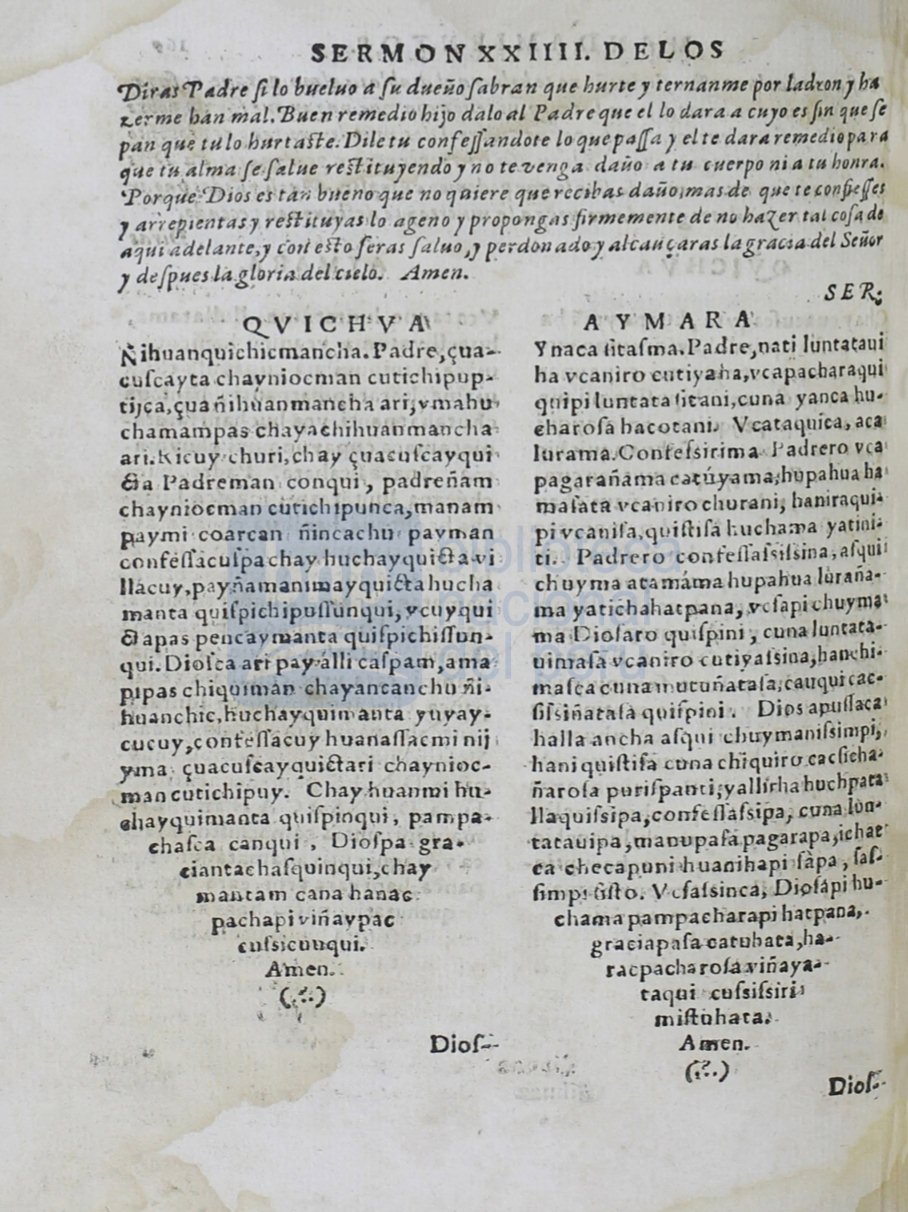 SERMON XXIIII. DELOS
Diras Padre ſi lo bueluo a ſu dueño ſabran que hurte y ternanme por ladron y ha
zerme han mal. Buen remedio hijo dalo al Padre que el lo dara a cuyo es ſin que ſe
pan que tu lo hurtaſte. Dile tu confeſſandote lo que paſſa y el te dara remedio para
que tu alma ſe ſalue reſtituyendo y no te venga daño a tu cuerpo ni a tu honra.
Porque Dios es tan bueno que no quiere que recibas daño, mas de que te confieſſes
y arrepientas y reſtituyas lo ageno y propongas firmemente de no hazer tal coſa de
aqui adelante, y con eſto ſeras ſaluo, y perdonado y alcançaras la gracia del Señor
y deſpues la gloria del cielo. Amen.
SER;
QVICHVA
Ñihuanquichicmancha. Padre, çua-
cuſcayta chayniocman cutichipup-
tijca, çua ñihuanmancha ari, vmahu
chamampas chayachihuanmancha
ari. Kicuy churi, chay çuacuſcayqui
cta Padreman conqui, padreñam
chayniocman cutichipunca, manam
paymi coarcan ñincachu payman
confeſſacuſpa chay huchayquicta vi
llacuy, payñam animayquicta hucha
manta quiſpichipuſſunqui, vcuyqui
ctapas pencaymanta quiſpichiſſun-
qui. Dioſca ari pay alli caſpam, ama
pipas chiquiman chayancanchu ñi-
huanchic, huchayquimanta yuyay-
cucuy, confeſſacuy huanaſſacmi nij
yma çuacuſcayquictari chaynioc-
man cutichipuy. Chay huanmi hu-
chayquimanta quiſpinqui, pampa-
chaſca canqui, Dioſpa gra-
ciantachaſquinqui, chay
mantam cana hanac
pachapi viñaypac
cuſsicunqui.
Amen.
(.·.)
Dioſ-
AYMARA
Ynaca ſitaſma. Padre, nati luntataui
ha vcaniro cutiyaha, vcapacharaqui
quipi luntata ſitani, cuna yanca hu-
charoſa hacotani. Vcataquica, aca
lurama. Confeſsirima Padrero vca
pagarañama catúyama, hupahua ha
maſata vcaniro churani, haniraqui
pi vcaniſa, quiſtiſa huchama yatini-
ti. Padrero confeſſaſsiſsina, aſqui
chuyma atamama hupahua luraña-
ma yatichahatpana, vcſapi chuyma
ma Dioſaro quiſpini, cuna luntata-
uimaſa vcaniro cutiyaſsina, hanchi-
maſca cuna mutuñataſa, cauquicac-
ſiſsiñataſa quiſpini. Dios apuſſaca
halla ancha aſqui chuymaniſsimpi,
hani quiſtiſa cuna chiquiro cacſicha-
ñaroſa puriſpanti, yallicha huchpata
llaquiſsipa, confeſſaſsipa, cuna lun-
tatauipa, manupaſa pagarapa, ichat
ca checapuni huanihapi ſapa, ſaſ-
ſimpi ſiſto. Vcſaſsinca, Dioſapi hu-
chama pampacharapi hatpana,
graciapaſa catuhata, ha-
racpacharoſa viñaya-
taqui cuſsiſsiri
miſtuhata.
Amen.
(.·.)
Dioſ-